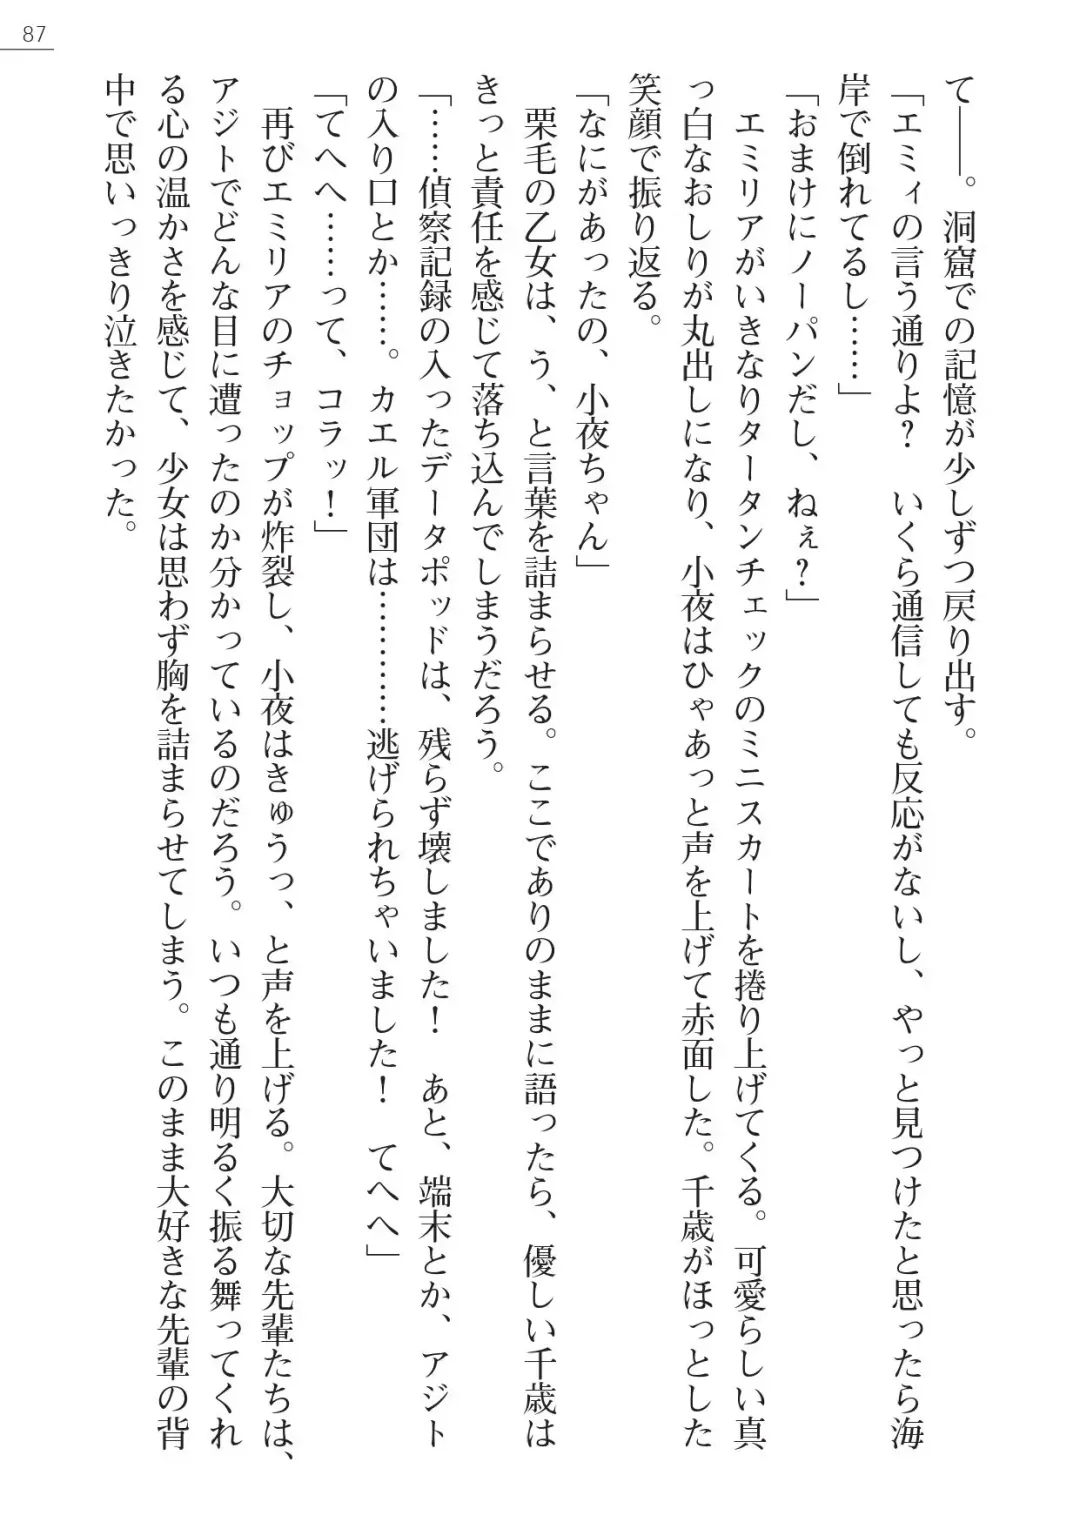 87
て――。洞窟での記憶が少しずつ戻り出す。
「エミィの言う通りよ？　いくら通信しても反応がないし、やっと見つけたと思ったら海
岸で倒れてるし……」
「おまけにノーパンだし、ねぇ？」
　エミリアがいきなりタータンチェックのミニスカートを捲り上げてくる。可愛らしい真
っ白なおしりが丸出しになり、小夜はひゃあっと声を上げて赤面した。千歳がほっとした
笑顔で振り返る。
「なにがあったの、小夜ちゃん」
　栗毛の乙女は、う、と言葉を詰まらせる。ここでありのままに語ったら、優しい千歳は
きっと責任を感じて落ち込んでしまうだろう。
「……偵察記録の入ったデータポッドは、残らず壊しました！　あと、端末とか、アジト
の入り口とか……。カエル軍団は…………逃げられちゃいました！　てへへ」
「てへへ……って、コラッ！」
　再びエミリアのチョップが炸裂し、小夜はきゅうっ、と声を上げる。大切な先輩たちは、
アジトでどんな目に遭ったのか分かっているのだろう。いつも通り明るく振る舞ってくれ
る心の温かさを感じて、少女は思わず胸を詰まらせてしまう。このまま大好きな先輩の背
中で思いっきり泣きたかった。